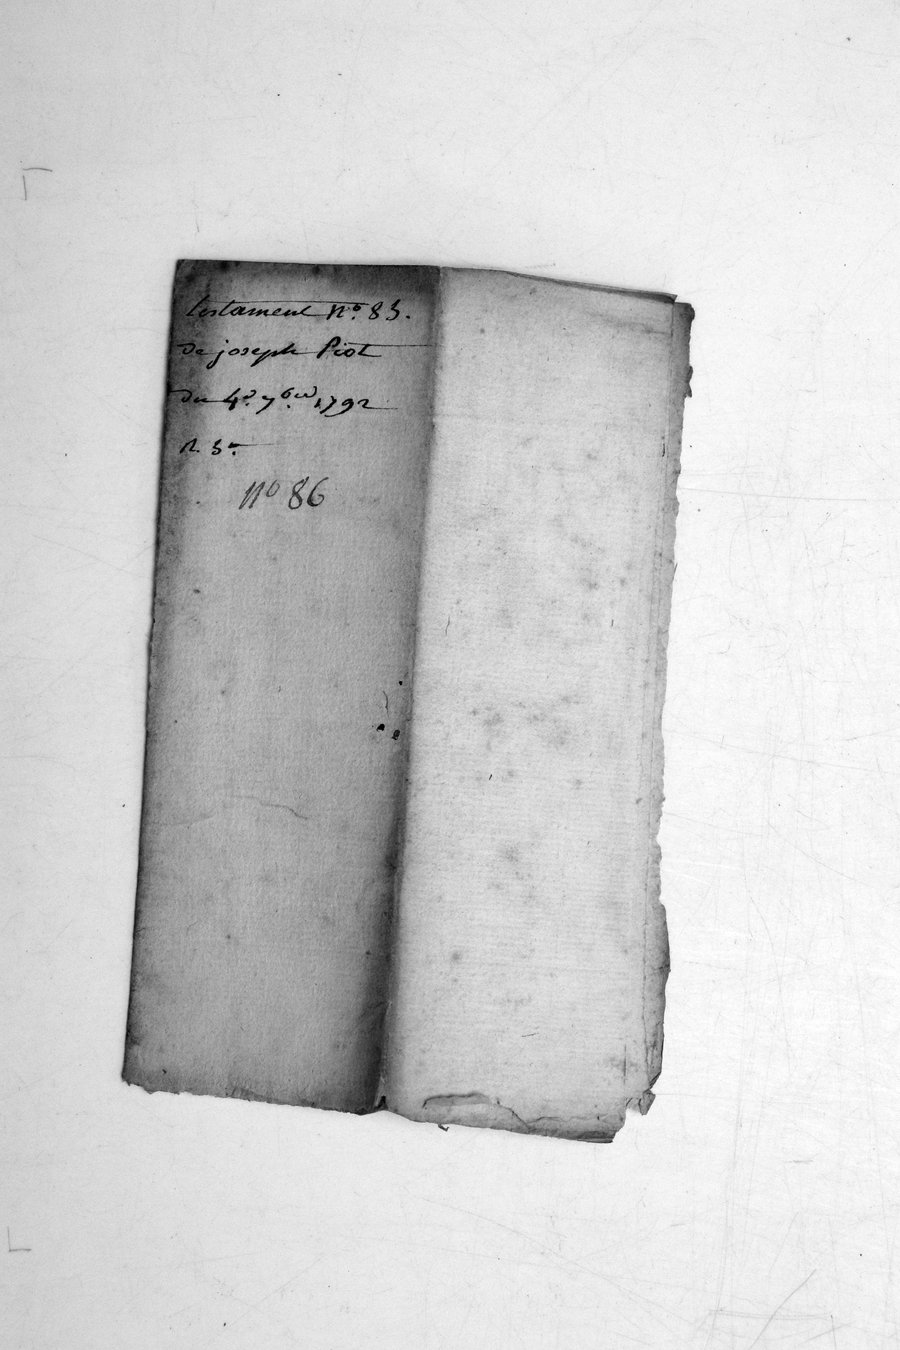 testament n.º 83.
de joseph Piot
du 4.e 7.bre 1792
n.º 86